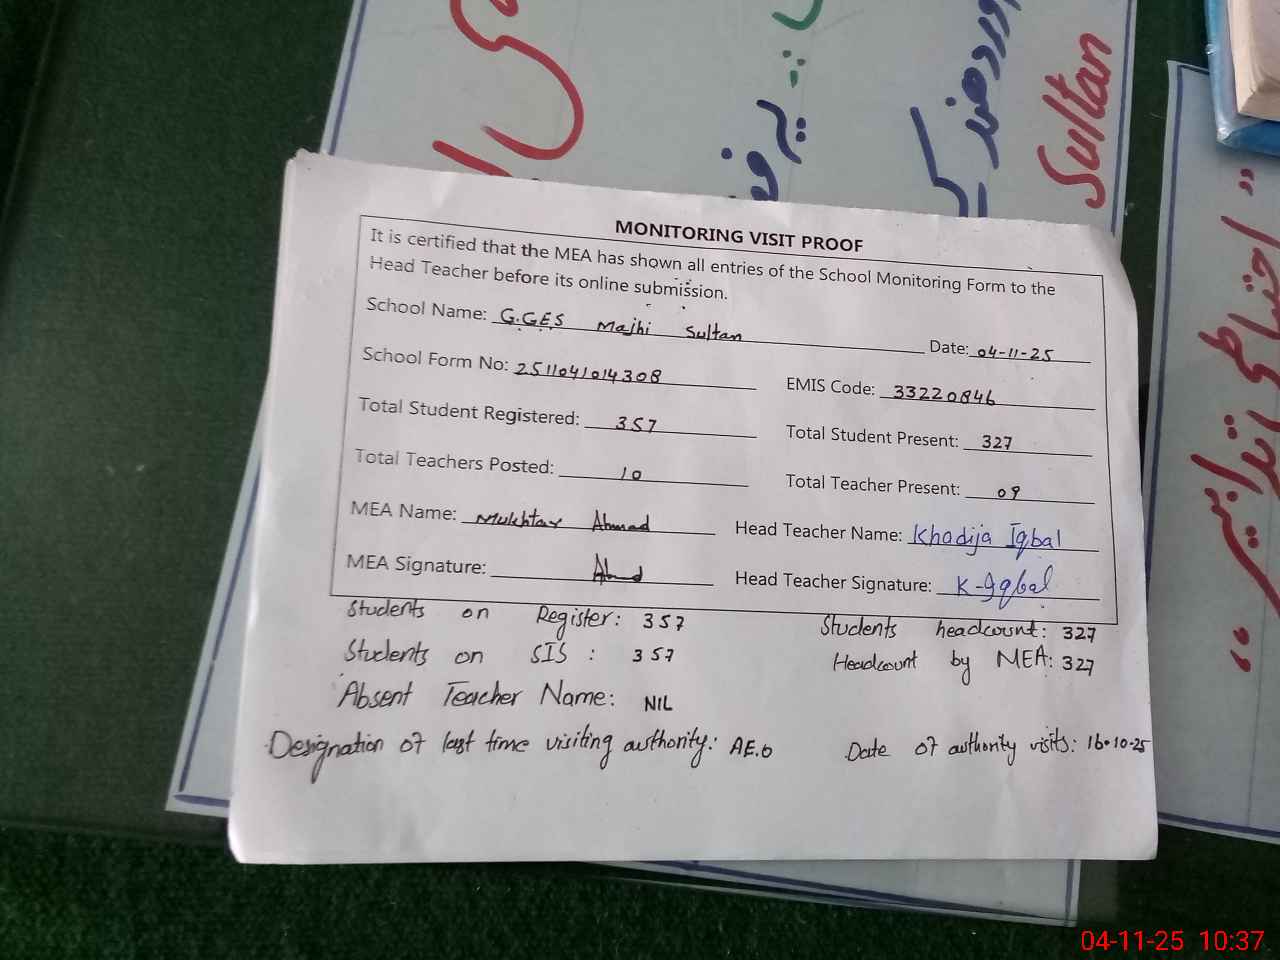 Sultan
MONITORING VISIT PROOF
It is certified that the MEA has shown all entries of the School Monitoring Form to the
Head Teacher before its online submission.
School Name: G.GES Majhi Sultan Date: 04-11-25
School Form No: 2511041014308 EMIS Code: 33220846
Total Student Registered: 357 Total Student Present: 327
Total Teachers Posted: 10 Total Teacher Present: 09
MEA Name: Mukhtar Ahmad Head Teacher Name: Khadija Iqbal
MEA Signature: Head Teacher Signature: K-Iqbal
Students on Register: 357 Students headcount: 327
Students on SIS : 357 Headcount by MEA: 327
Absent Teacher Name: NIL
Designation of last time visiting authority: AE.O Date of authority visits: 16-10-25
"احتیاطی تدابیر"
04-11-25 10:37